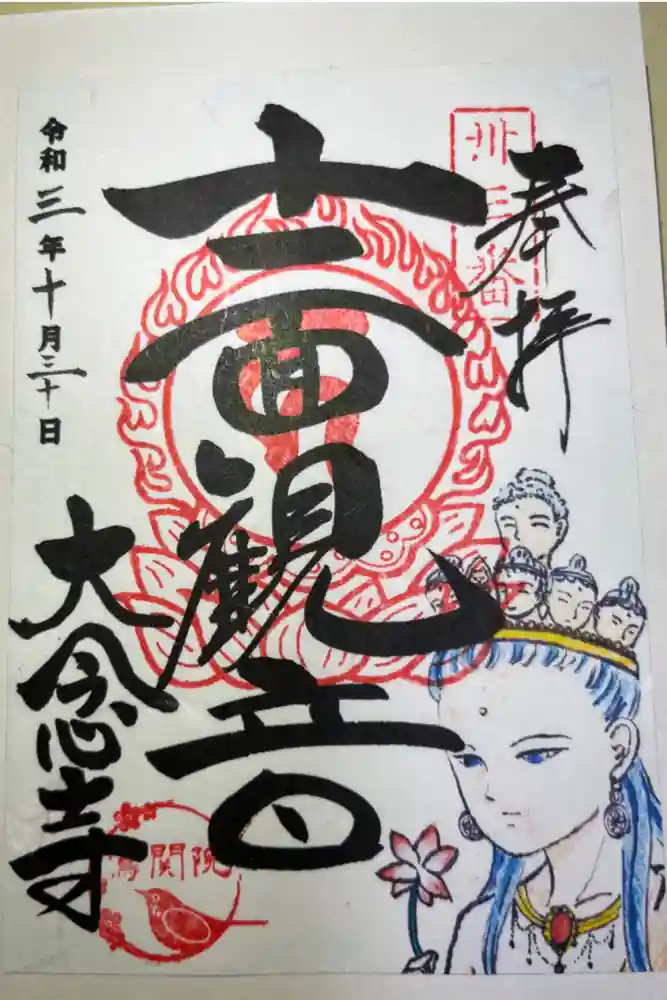 奉拝
卅三番
十一面観音
令和三年十月三十日
大念寺
関院